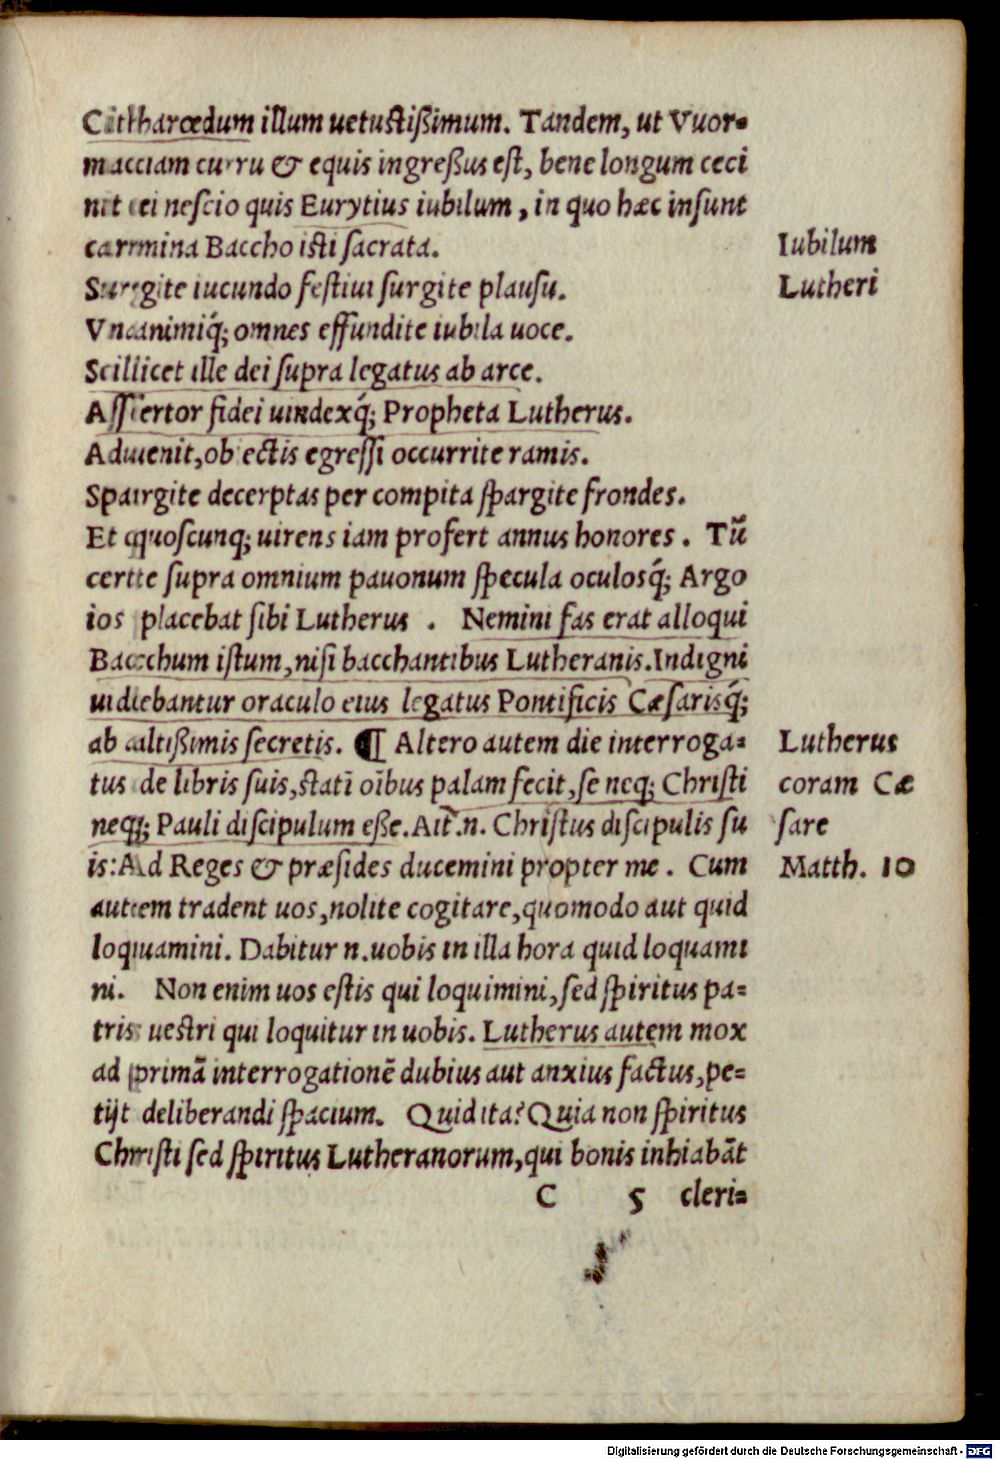 Citharœdum illum uetustißimum. Tandem, ut Vuor-
macciam curru & equis ingreßus est, bene longum ceci
nit ei nescio quis Eurytius iubilum, in quo hæc insunt
carmina Baccho isti sacrata.
Iubilum
Lutheri
Surgite iucundo festiui surgite plausu.
Vnanimiq́; omnes effundite iubila uoce.
Scilicet ille dei supra legatus ab arce.
Assertor fidei uindexq́; Propheta Lutherus.
Aduenit, obiectis egressi occurrite ramis.
Spargite decerptas per compita spargite frondes.
Et quoscunq; uirens iam profert annus honores. Tũ
certe supra omnium pauonum specula oculosq́; Argo
ios placebat sibi Lutherus. Nemini fas erat alloqui
Bacchum istum, nisi bacchantibus Lutheranis. Indigni
uidebantur oraculo eius legatus Pontificis Cæsarisq́;
ab altißimis secretis. ¶ Altero autem die interroga-
tus de libris suis, statĩ oĩbus palam fecit, se neq; Christi
neq; Pauli discipulum eße. Ait.n. Christus discipulis su
is: Ad Reges & præsides ducemini propter me. Cum
Lutherus
coram Cæ
sare
Matth. 10
autem tradent uos, nolite cogitare, quomodo aut quid
loquamini. Dabitur n. uobis in illa hora quid loquami
ni. Non enim uos estis qui loquimini, sed spiritus pa-
tris uestri qui loquitur in uobis. Lutherus autem mox
ad primã interrogationẽ dubius aut anxius factus, pe-
tijt deliberandi spacium. Quid ita? Quia non spiritus
Christi sed spiritus Lutheranorum, qui bonis inhiabãt
C 5 cleri-
Digitalisierung gefördert durch die Deutsche Forschungsgemeinschaft - DFG